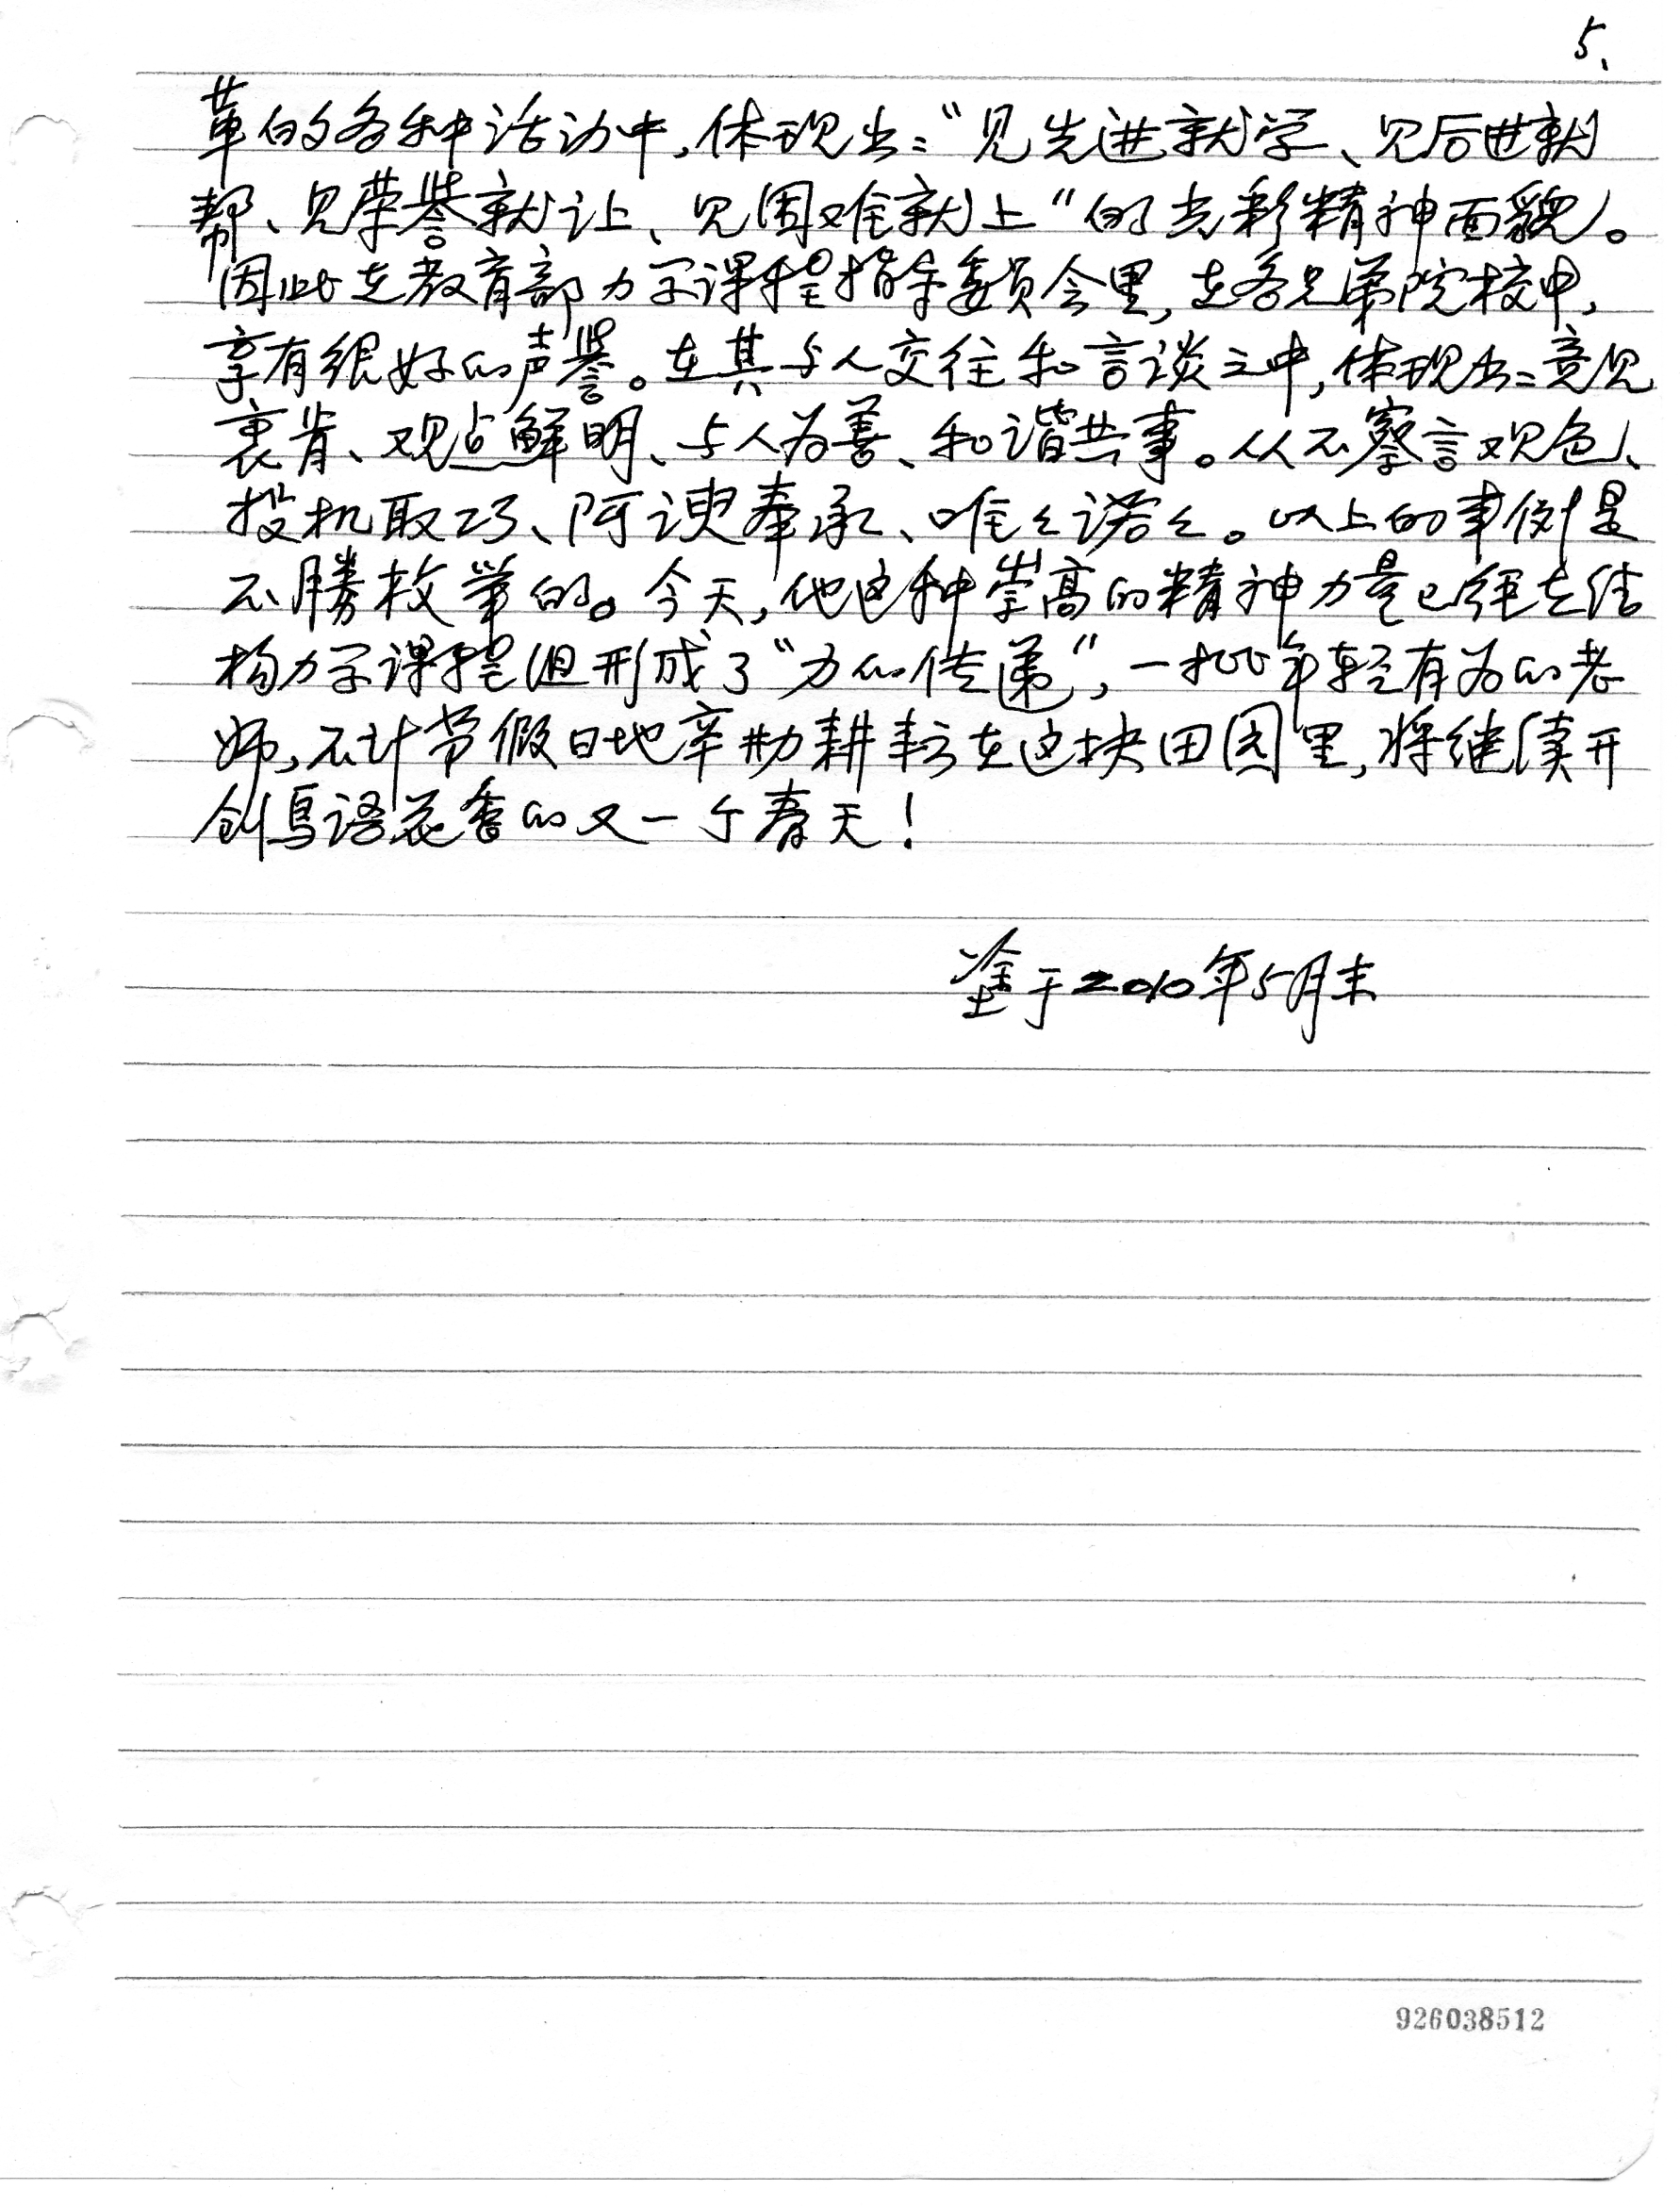 5、
革的各种活动中，体现出：“见先进就学、见后进就
帮、见荣誉就让、见困难就上”的光彩精神面貌。
因此在教育部力学课程指导委员会里，在各兄弟院校中，
享有很好的声誉。在其与人交往和言谈之中，体现出：意见
衷肯、观点鲜明、与人为善、和谐共事。从不察言观色、
投机取巧、阿谀奉承、唯々诺々。以上的事例是
不勝枚举的。今天，他这种崇高的精神力量已经在结
构力学课程组形成了“力的传递”，一批年轻有为的老
师，不计节假日地辛勤耕耘在这块田园里，将继续开
创鸟语花香的又一个春天！
于2010年5月末
926038512